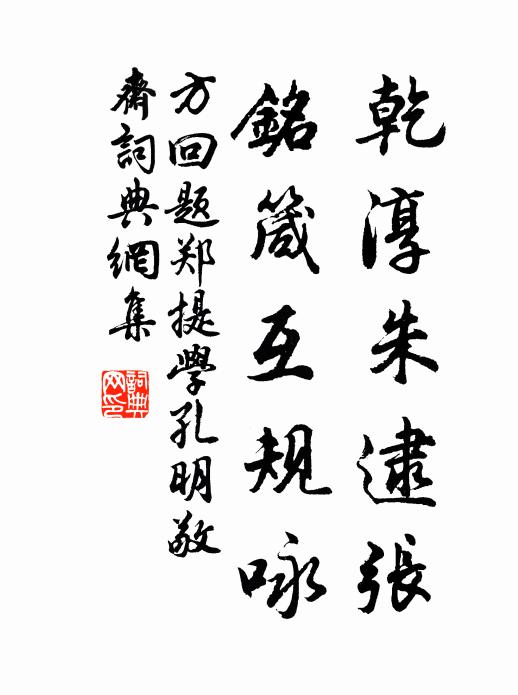 乾淳朱逮張
銘箴互規咏
方回题郑提學孔明敬
齋詞典網集
詞典
网印